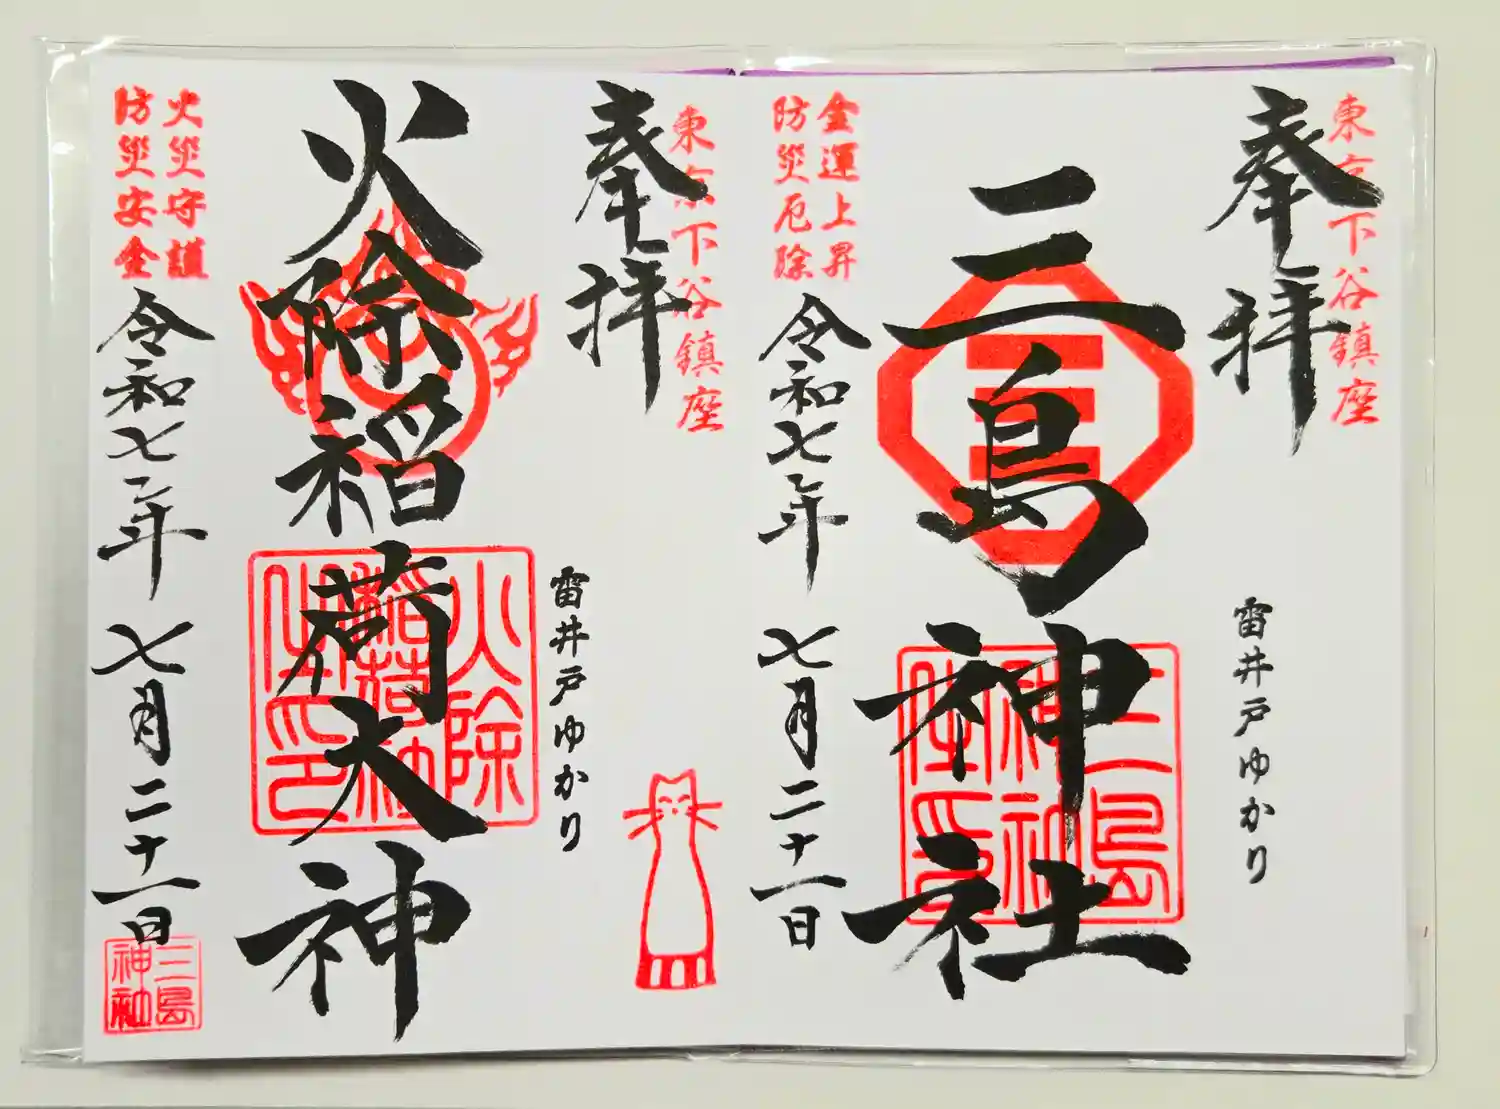 東京下谷鎮座
奉拝
雷井戸ゆかり
三島神社
三島
神社
社印
金運上昇
防災厄除
令和七年 七月二十一日
東京下谷鎮座
奉拝
雷井戸ゆかり
火除稲荷大神
火除
稲荷社
火災守護
防災安全
令和七年 七月二十一日
三島
神社